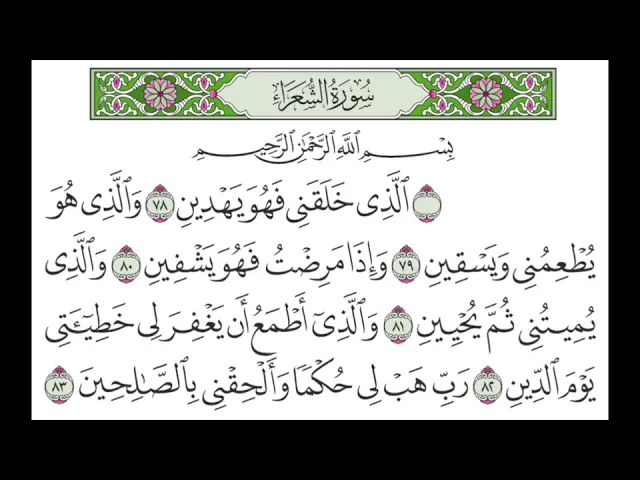 سُورَةُ الشُّعَرَاءِ
بِسْمِ ٱللَّهِ ٱلرَّحْمَٰنِ ٱلرَّحِيمِ
ٱلَّذِى خَلَقَنِى فَهُوَ يَهْدِينِ ٧٨ وَٱلَّذِى هُوَ
يُطْعِمُنِى وَيَسْقِينِ ٧٩ وَإِذَا مَرِضْتُ فَهُوَ يَشْفِينِ ٨٠ وَٱلَّذِى
يُمِيتُنِى ثُمَّ يُحْيِينِ ٨١ وَٱلَّذِىٓ أَطْمَعُ أَن يَغْفِرَ لِى خَطِيٓـَٔتِى
يَوْمَ ٱلدِّينِ ٨٢ رَبِّ هَبْ لِى حُكْمًا وَأَلْحِقْنِى بِٱلصَّٰلِحِينَ ٨٣